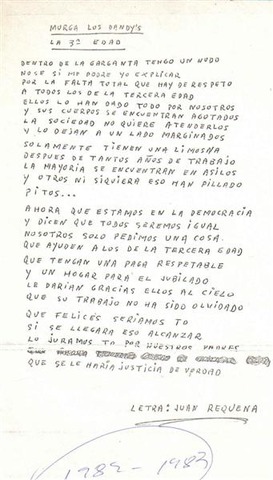 MURGA LOS DANDY'S
LA 3ª EDAD
DENTRO DE LA GARGANTA TENGO UN NUDO
NOSE SI ME PODRE YO EXPLICAR
POR LA FALTA TOTAL QUE HAY DE RESPETO
A TODOS LOS DE LA TERCERA EDAD
ELLOS LO HAN DADO TODO POR NOSOTROS
Y SUS CUERPOS SE ENCUENTRAN AGOTADOS
LA SOCIEDAD NO QUIERE ATENDERLOS
Y LO DEJAN A UN LADO MARGINADOS
SOLAMENTE TIENEN UNA LIMOSNA
DESPUES DE TANTOS AÑOS DE TRABAJO
LA MAYORIA SE ENCUENTRAN EN ASILOS
Y OTROS NI SIQUIERA ESO HAN PILLADO
PITOS...
AHORA QUE ESTAMOS EN LA DEMOCRACIA
Y DICEN QUE TODOS SEREMOS IGUAL
NOSOTROS SOLO PEDIMOS UNA COSA
QUE AYUDEN A LOS DE LA TERCERA EDAD
QUE TENGAN UNA PAGA RESPETABLE
Y UN HOGAR PARA EL JUBILADO
LE DARIAN GRACIAS ELLOS AL CIELO
QUE SU TRABAJO NO HA SIDO OLVIDADO
QUE FELICES SERIAMOS TO
SI SE LLEGARA ESO ALCANZAR
LO JURAMOS TO POR NUESTROS PADRES
QUE SE LE HARIA JUSTICIA DE VERDAD
LETRA: JUAN REQUENA
1982-1983